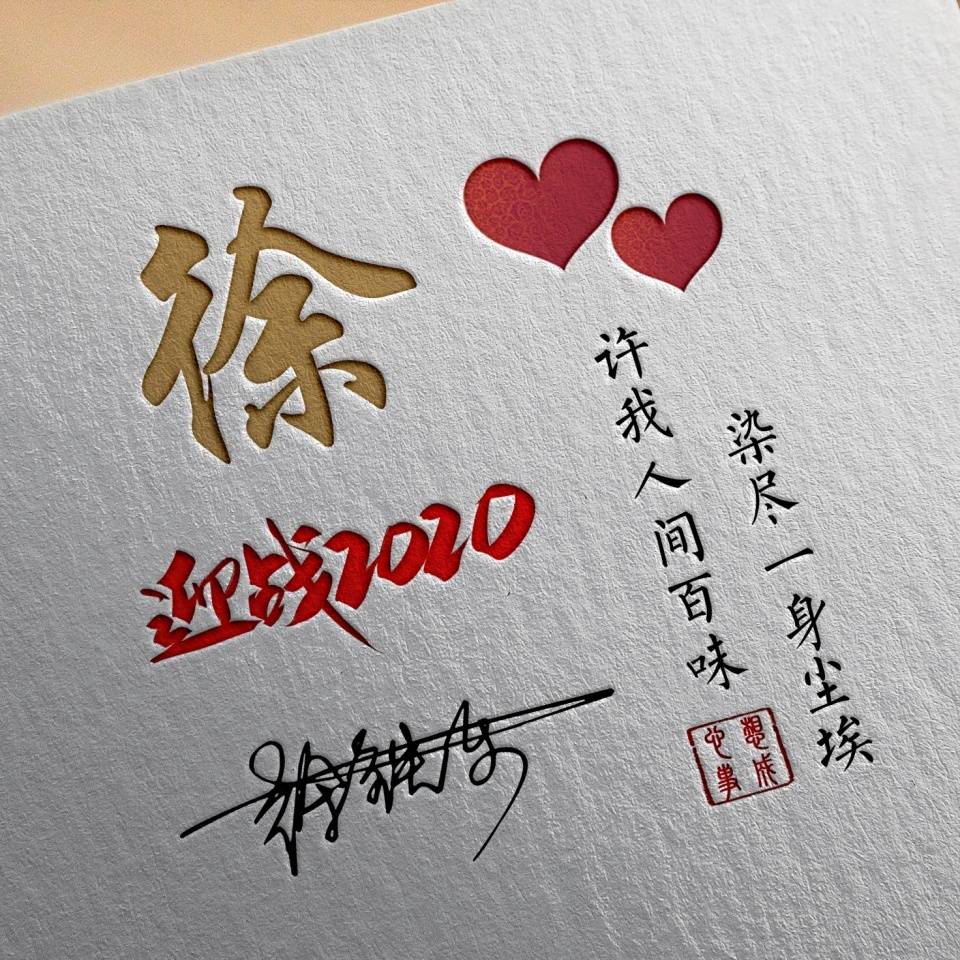 徐
迎战2020
染尽一身尘埃
许我人间百味
心想事成